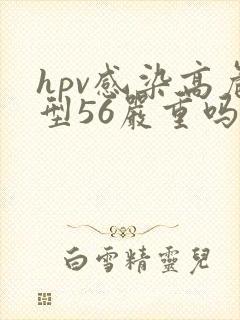 hpv感染高危
型56嚴重吗
白雪精靈兒